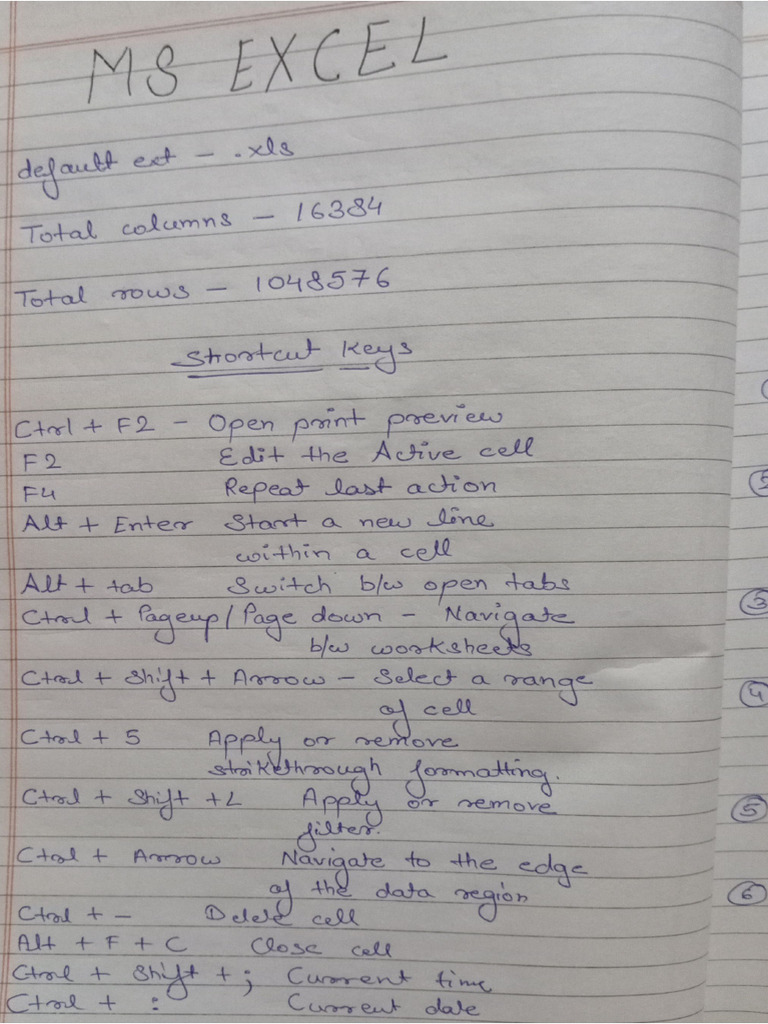 MS EXCEL
default ext - .xls
Total columns - 16384
Total rows - 1048576
Shortcut Keys
Ctrl + F2 - Open print preview
F2 Edit the Active cell
F4 Repeat last action
Alt + Enter Start a new line
within a cell
Alt + tab Switch b/w open tabs
Ctrl + Pageup/Page down - Navigate
b/w worksheets
Ctrl + Shift + Arrow - Select a range
of cell
Ctrl + 5 Apply or remove
strikethrough formatting.
Ctrl + Shift + L Apply or remove
filter.
Ctrl + Arrow Navigate to the edge
of the data region
Ctrl + - Delete cell
Alt + F + C Close cell
Ctrl + Shift + ; Current time
Ctrl + : Current date
3
4
5
6